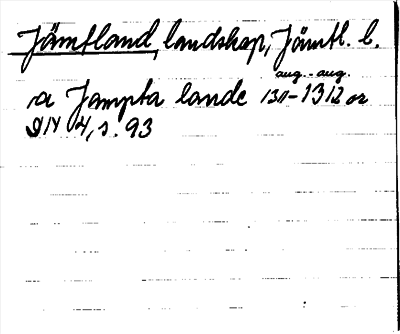 Jämtland, landskap, Jämtl. l.
aug. - aug.
a Jampta lande 1311-1312 or
DN 4, s. 93